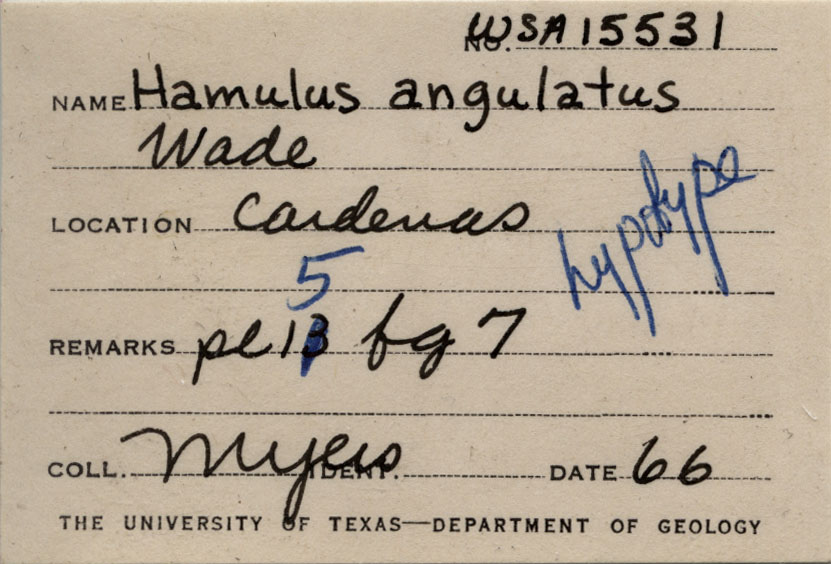 NO. WSA 15531
NAME Hamulus angulatus
Wade
LOCATION Cardenas
hypotype
5
REMARKS pl 13 fg 7
COLL. Myers IDENT. DATE 66
THE UNIVERSITY OF TEXAS—DEPARTMENT OF GEOLOGY